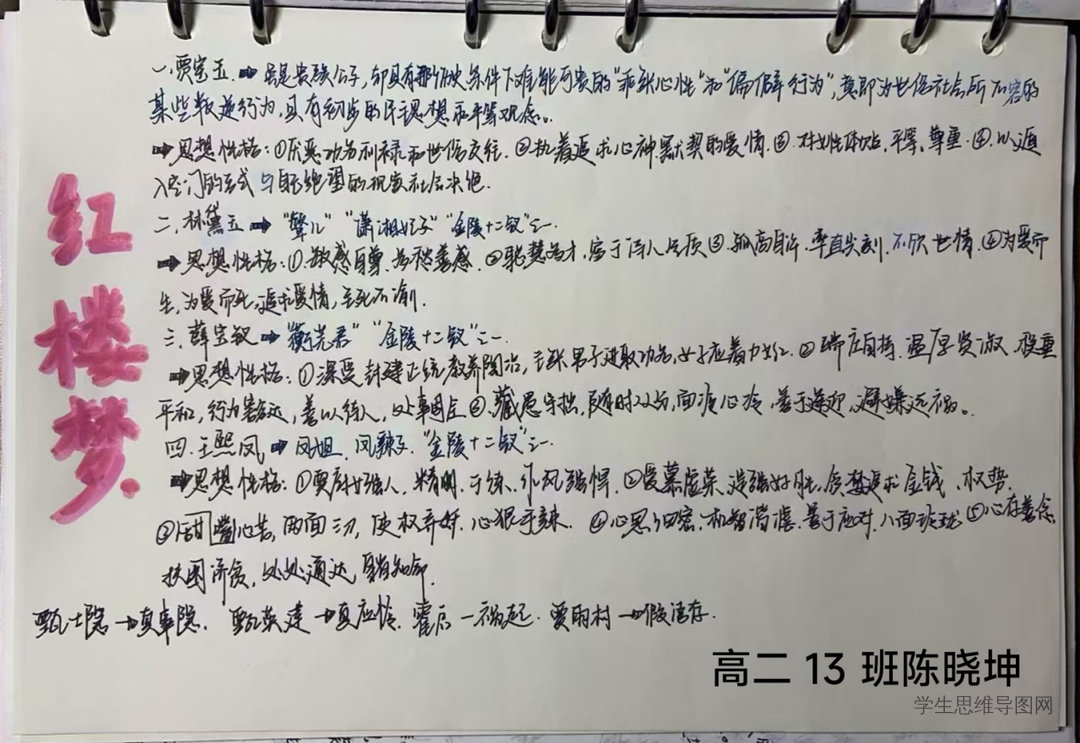 红楼梦
一.贾宝玉.➡虽是贵族公子,却具有那个做条件下难能可贵的"乖张心性"和"偏僻行为",真即为世俗社会所不容的
某些叛逆行为,具有初步的民主思想和平等观念。
➡思想性格:①厌恶功名利禄和世俗交往.②执着追求心神默契的爱情.③.对女性体贴,平等,尊重.④.以遁
入空门的方式与自己绝望的现实社会决绝.
二.林黛玉➡"颦儿""潇湘妃子""金陵十二钗"之一.
➡思想性格:①.敏感自尊,多愁善感.②聪慧多才,富于诗人气质③.孤高自许,率直尖刻,不欣世情.④为爱而
生,为爱而死,追求爱情,至死不渝.
三.薛宝钗➡"蘅芜君""金陵十二钗"之一.
➡思想性格:①深受封建正统教养陶冶,主张男子进取功名,女子应着力女红.②端庄自持.温厚贤淑.稳重
平和,行为豁达,善以待人,处事周全③.藏愚守拙,随时以分,面准心冷,善于逢迎,避嫌远祸。
四.王熙凤➡凤姐.凤辣子."金陵十二钗"之一
➡思想性格:①要用好强人,精明,干练,作风强悍.②爱慕虚荣,逞强好胜,贪婪追求金钱.权势.
③甜嘴心苦,两面三刀,使权弄奸,心狠手辣.④心思细密.机智诙谐.善于应对,八面玲珑⑤心存善念,
扶困济贫,处处通达,自知命.
甄士隐→真事隐.甄英莲→真应怜.霍启→祸起.贾雨村→假语存.
高二 13 班陈晓坤
学生思维导图网